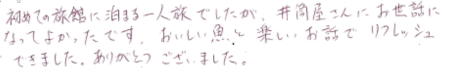 初めての旅館に泊まる一人旅でしたが、井筒屋さんにお世話に
なってよかったです。おいしい魚と楽しいお話でリフレッシュ
できました。ありがとうございました。